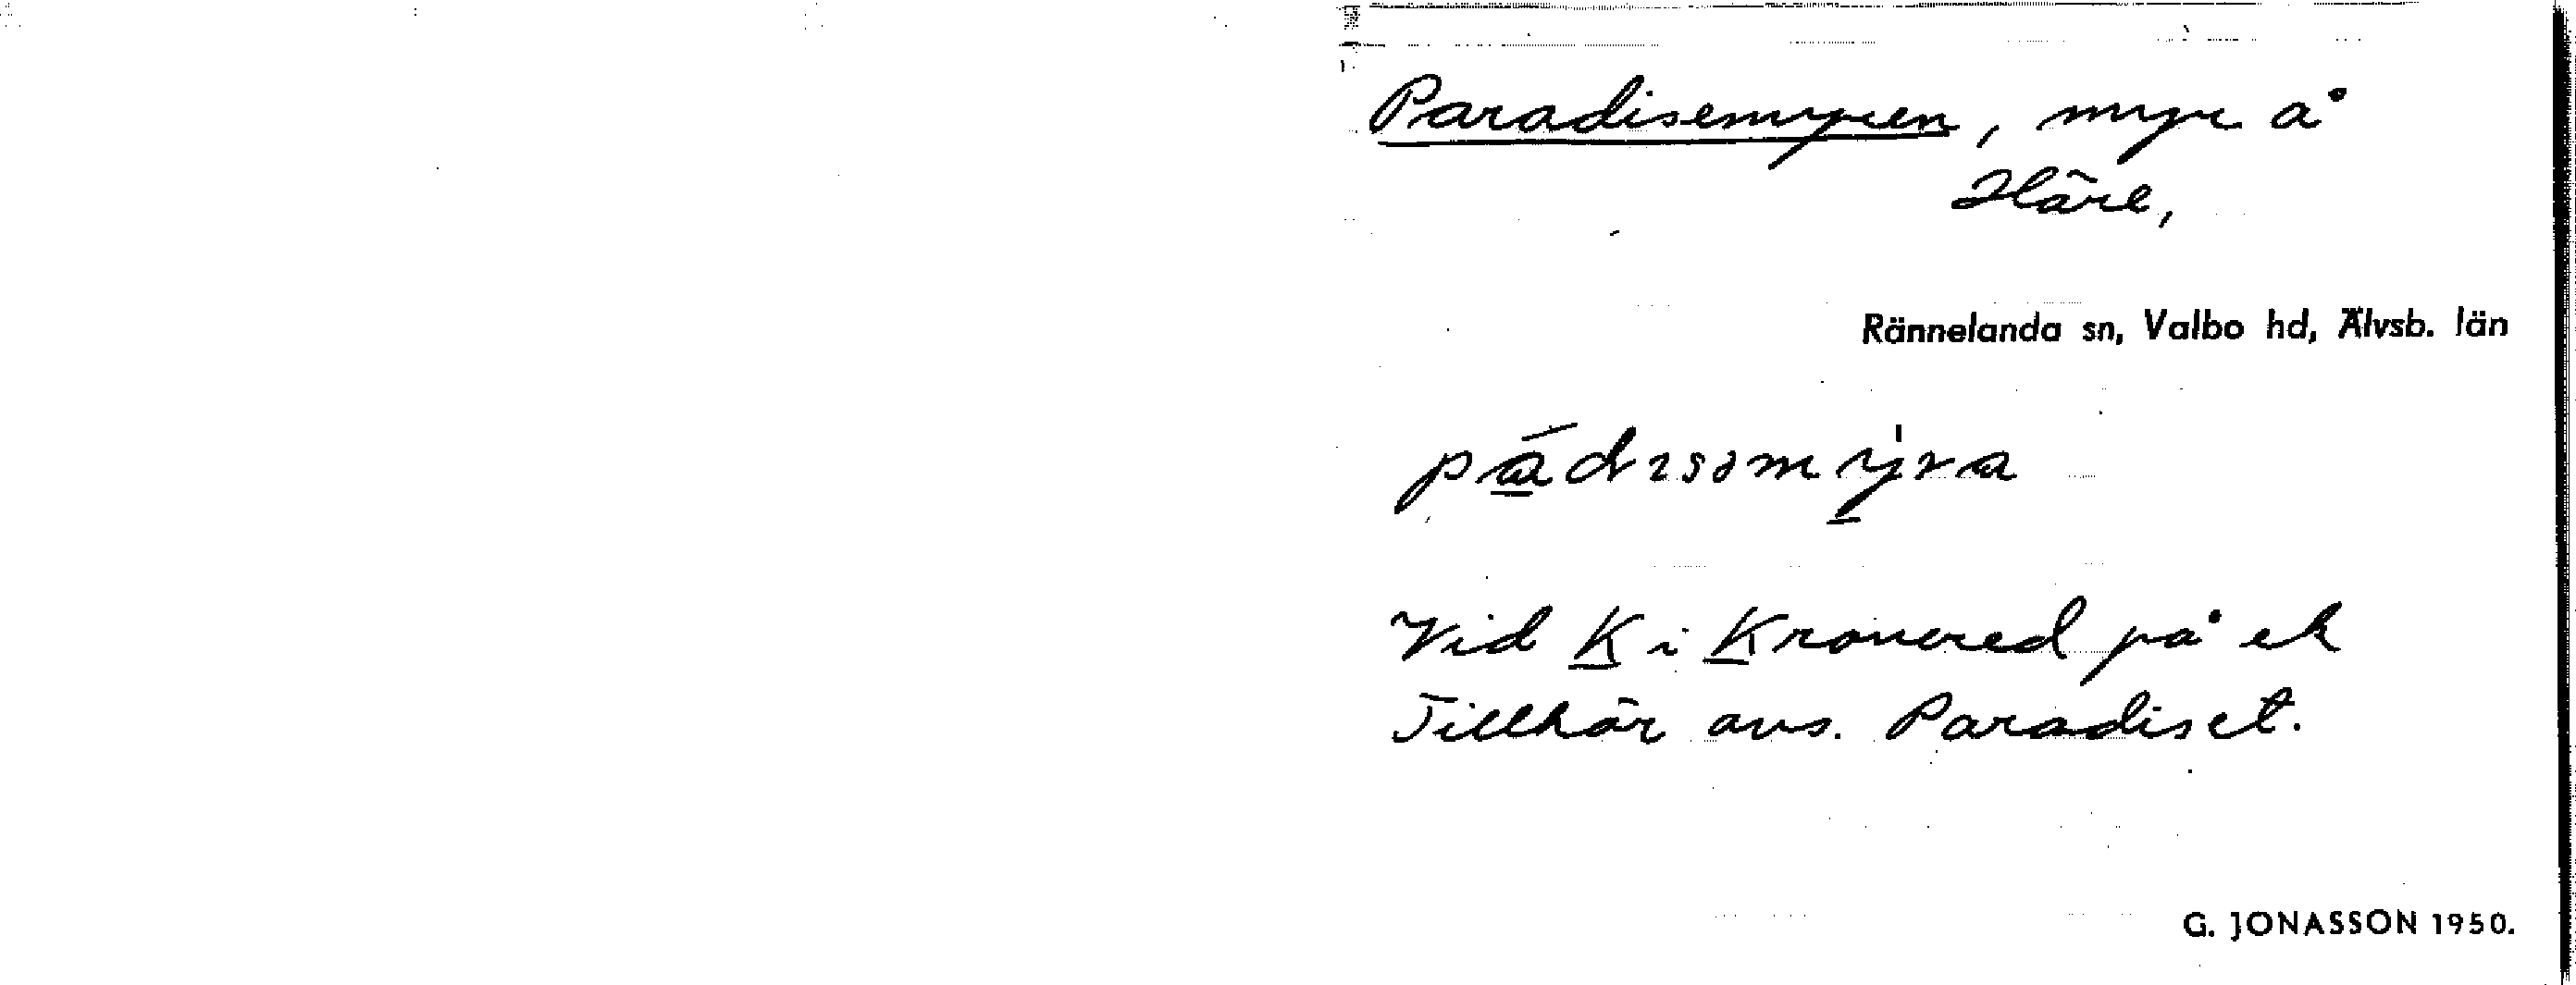 Paradisemyren, myr å
Häre,
Rännelanda sn, Valbo hd, Älvsb. län
Vid K i Kronered på ek
Tillhör avs. Paradiset.
G. JONASSON 1950.